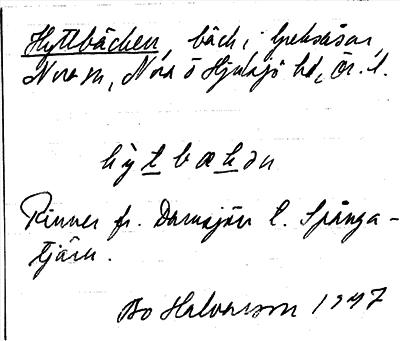 Hyttbäcken, bäck i Grecksåsar,
Nora sn, Nora o Hjulsjö hd, Ör. l.
hỳt̲bäk̲ən
Rinner fr. Damsjön t. Spånga-
tjärn.
Bo Halvarson 1947